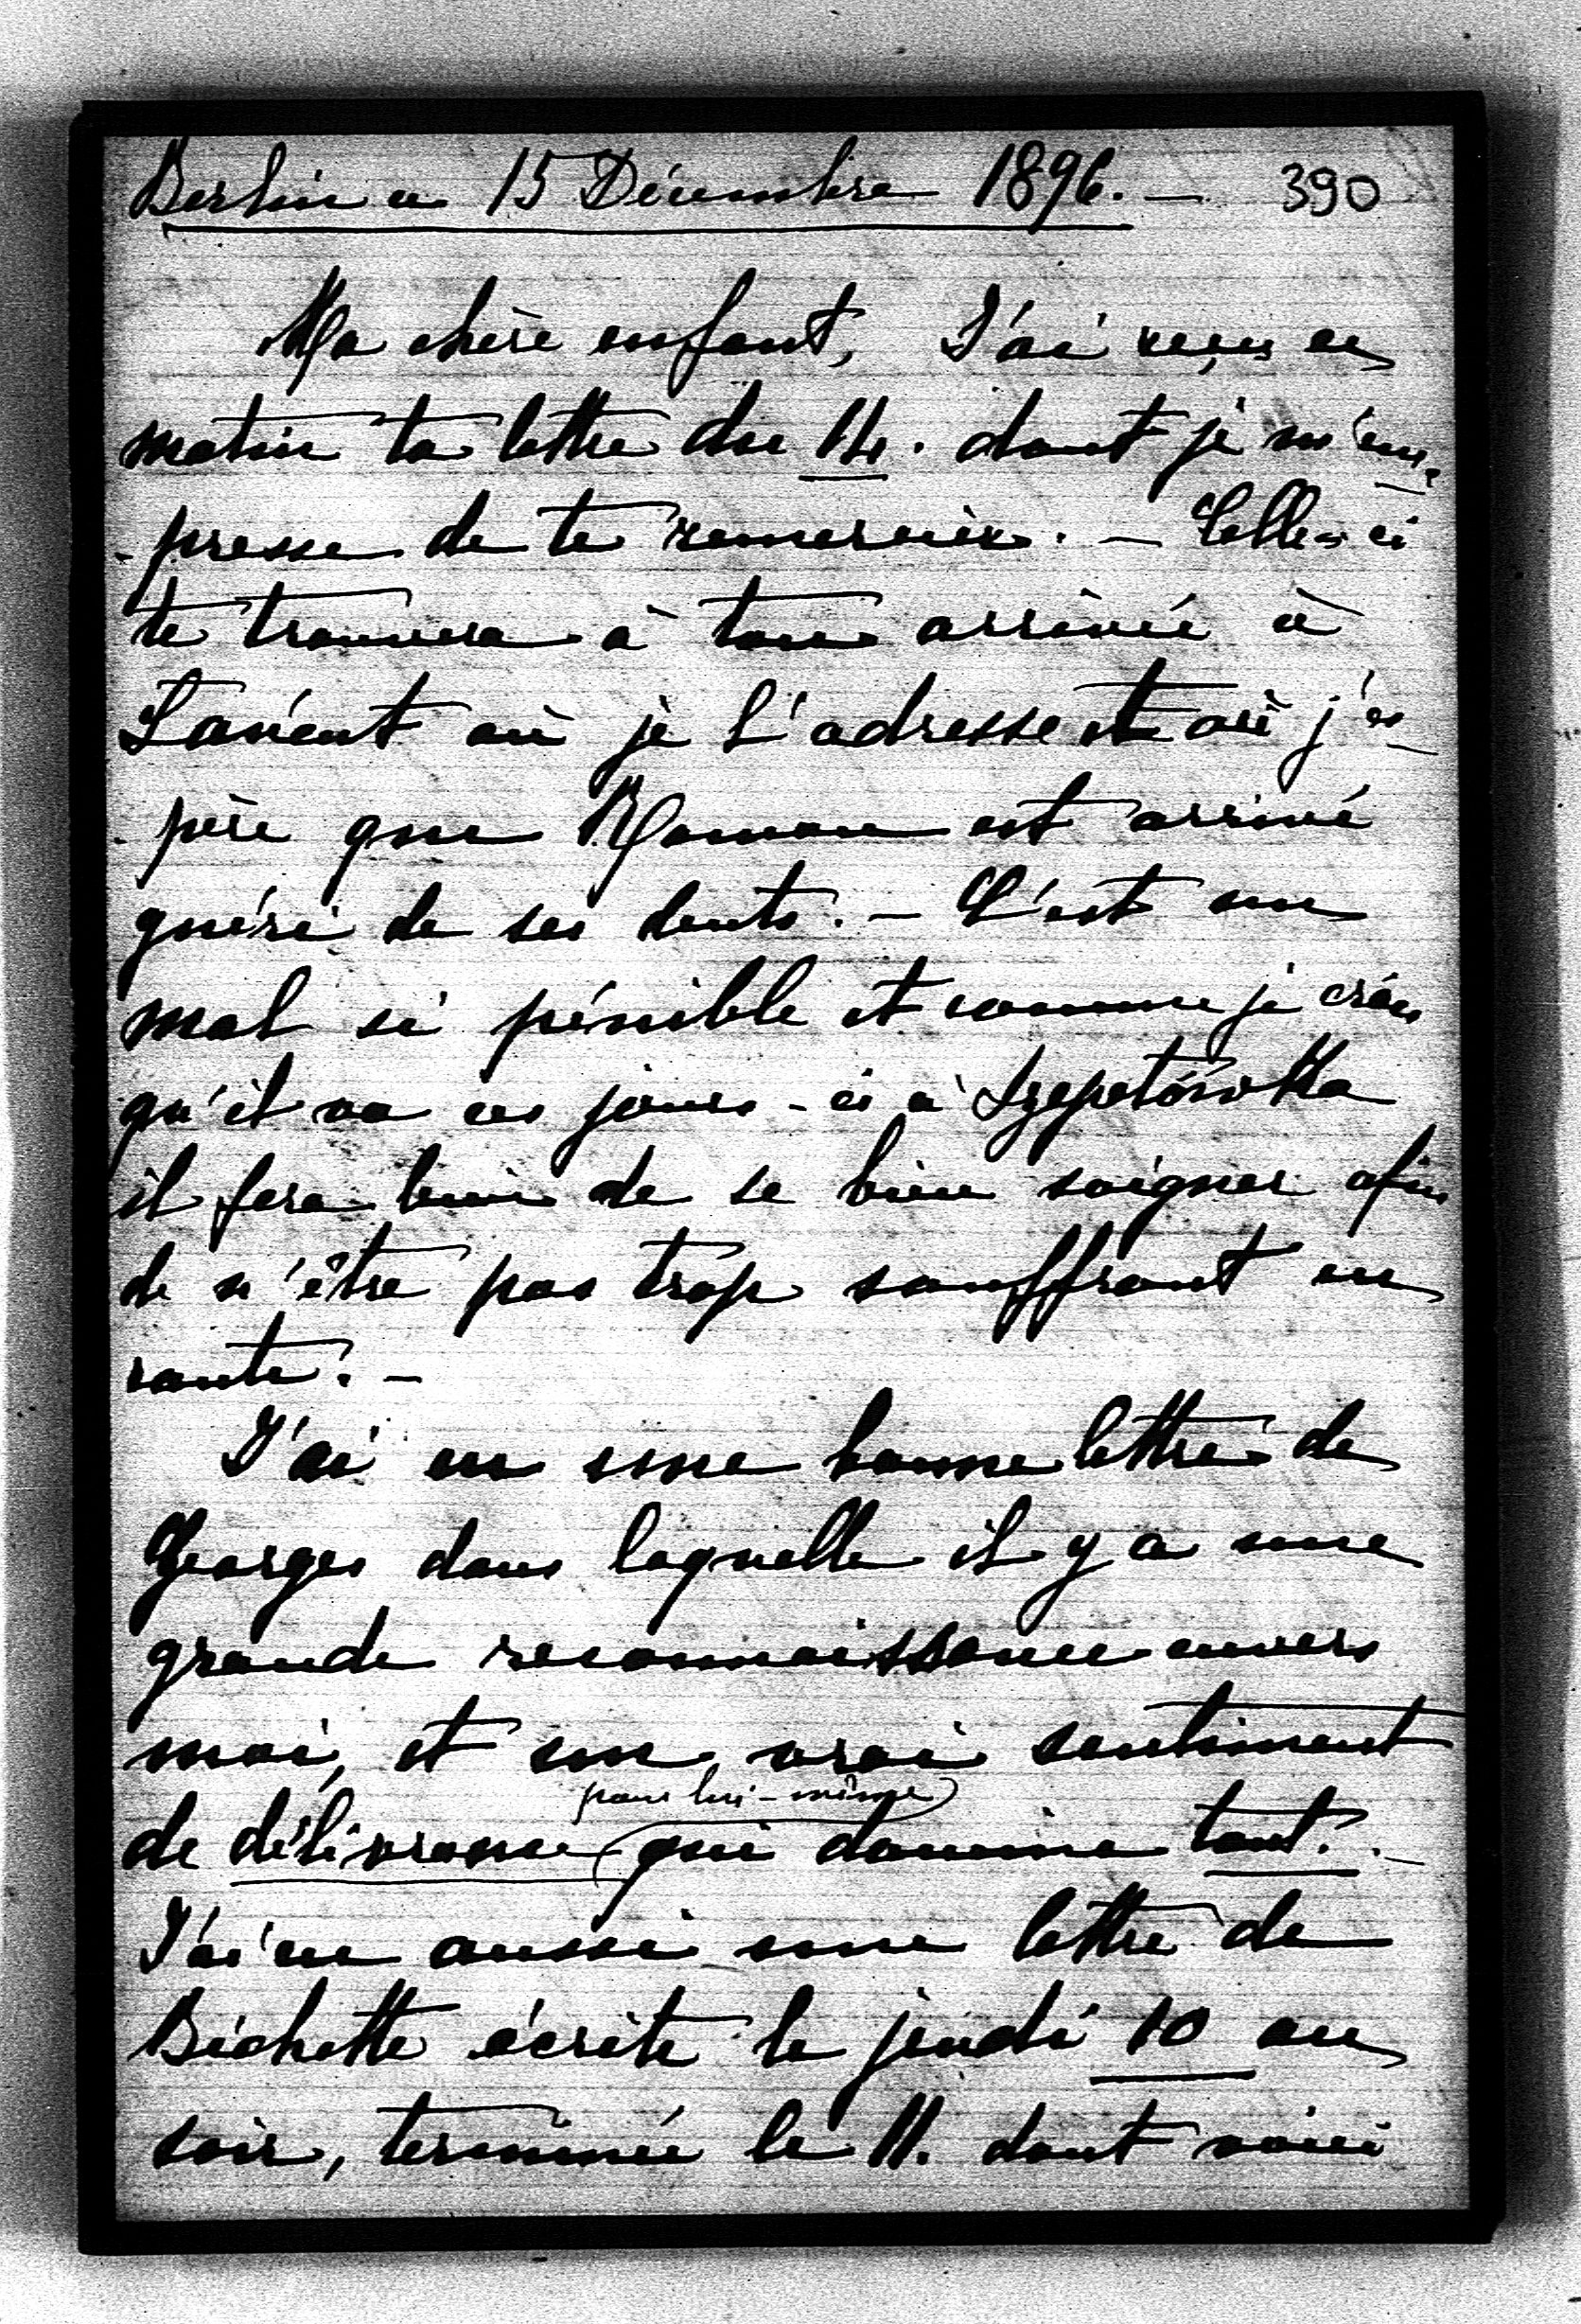 Berlin ce 15 Décembre 1896. — 390
Ma chère enfant, J'ai reçu ce
matin ta lettre du 14. dont je m'em-
-presse de te remercier. — Celle-ci
te trouvera à ton arrivée à
Lancut où je l'adresse et où j'es-
-père que Roman est arrivé
guéri de ses dents. — C'est un
mal si pénible et comme je crois
qu'il va ces jours-ci à Szepetówka
il fera bien de se bien soigner afin
de n'être pas trop souffrant en
route. —
J'ai eu une bonne lettre de
Georges dans laquelle il y a une
grande reconnaissance envers
moi, et un vrai sentiment
pour lui-même
de délivrance qui domine tout. —
J'ai eu aussi une lettre de
Bichette écrite le jeudi 10 au
soir, terminée le 11. dont voici